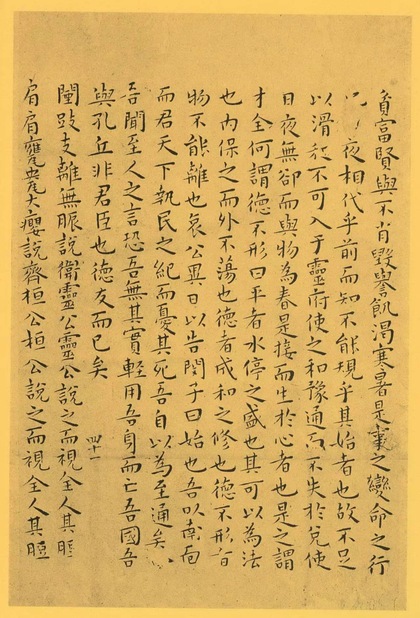 貧富賢與不肖毀譽飢渴寒暑是事之變命之行
夜相代乎前而知不能規乎其始者也故不足
以滑和不可入于靈府使之和豫通而不失於兌使
日夜無卻而與物為春是接而生於心者也是之謂
才全何謂德不形曰平者水停之盛也其可以為法
也內保之而外不蕩也德者成和之修也德不形者
物不能離也哀公異日以告閔子曰始也吾以南面
而君天下執民之紀而憂其死吾自以為至通矣
吾聞至人之言恐吾無其實輕用吾身而亡吾國吾
與孔丘非君臣也德友而已矣 四十一
闉跂支離無脤說衛靈公靈公說之而視全人其脰
肩肩甕㼜大癭說齊桓公桓公說之而視全人其脰